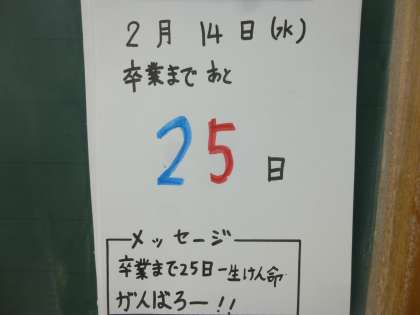 2月14日(水)
卒業まで あと
25日
メッセージ
卒業まで25日一生けん命
がんばろー!!